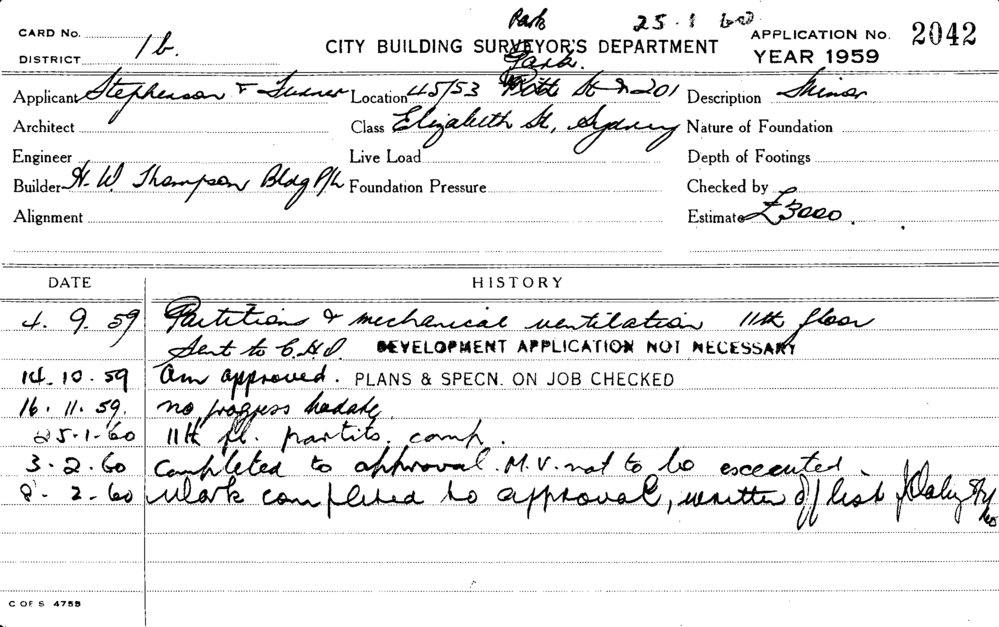 Park 25.1.60
CARD No.
DISTRICT 1b.
CITY BUILDING SURVEYOR'S DEPARTMENT
APPLICATION No. 2042
YEAR 1959
Park
Applicant Stephenson & Turner Location 45/53 St & 201 Description Minor
Architect Class Elizabeth St, Sydney Nature of Foundation
Engineer Live Load Depth of Footings
Builder H. W. Thompson Bldg P/L Foundation Pressure Checked by
Alignment Estimate £3000.
DATE HISTORY
4. 9. 59 Partitions & mechanical ventilation 11th floor
Sent to C.H.I. DEVELOPMENT APPLICATION NOT NECESSARY
14.10.59 Am approved. PLANS & SPECN. ON JOB CHECKED
16.11.59. no progress to date.
25-1-60 11th fl. partits. comp.
3.2.60 Completed to approval. M.V. not to be executed.
8.2.60 Work completed to approval, written off list
C OF S 475B